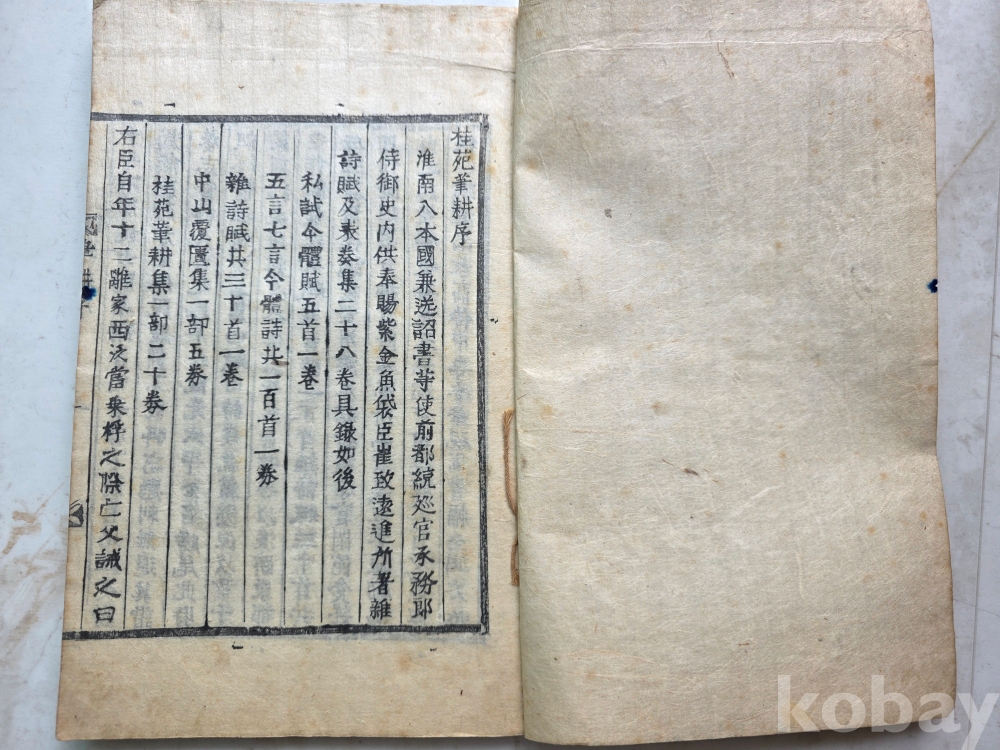 桂苑筆耕序
淮南入本國兼送詔書等使前都統巡官承務郎
侍御史內供奉賜紫金魚袋臣崔致遠進所著雜
詩賦及表奏集二十八卷具錄如後
私試今體賦五首一卷
五言七言今體詩共一百首一卷
雜詩賦共三十首一卷
中山覆簣集一部五卷
桂苑筆耕集一部二十卷
右臣自年十二離家西泛當乘桴之際亡父誡之曰
kobay